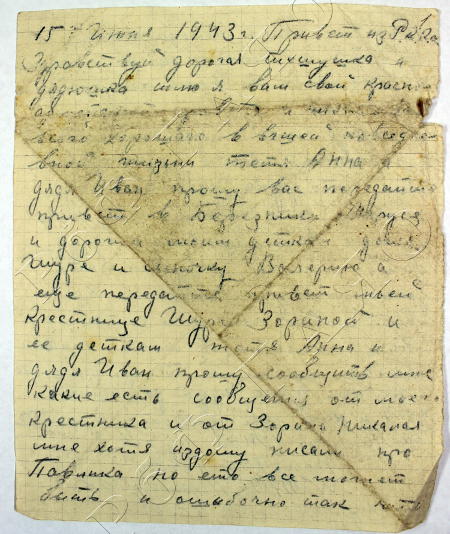 15 Июня 1943 г. Привет из
Здравствуй дорогая и
дядюшка шлю я вам свой красно
и
всего хорошего в вашей
вной жизни тетя Анна и
дядя Иван прошу вас передайте
привет в Березники
и дорогим моим деткам
Шуре и Валерию а
еще передайте привет моей
крестнице Шуре Зориной и
ее деткам тетя Анна и
дядя Иван прошу сообщить мне
какие есть сообщения от моего
крестника и от Зорина Николая
мне хотя издому писали про
Павлика но ето все может
быть и ошибочно так